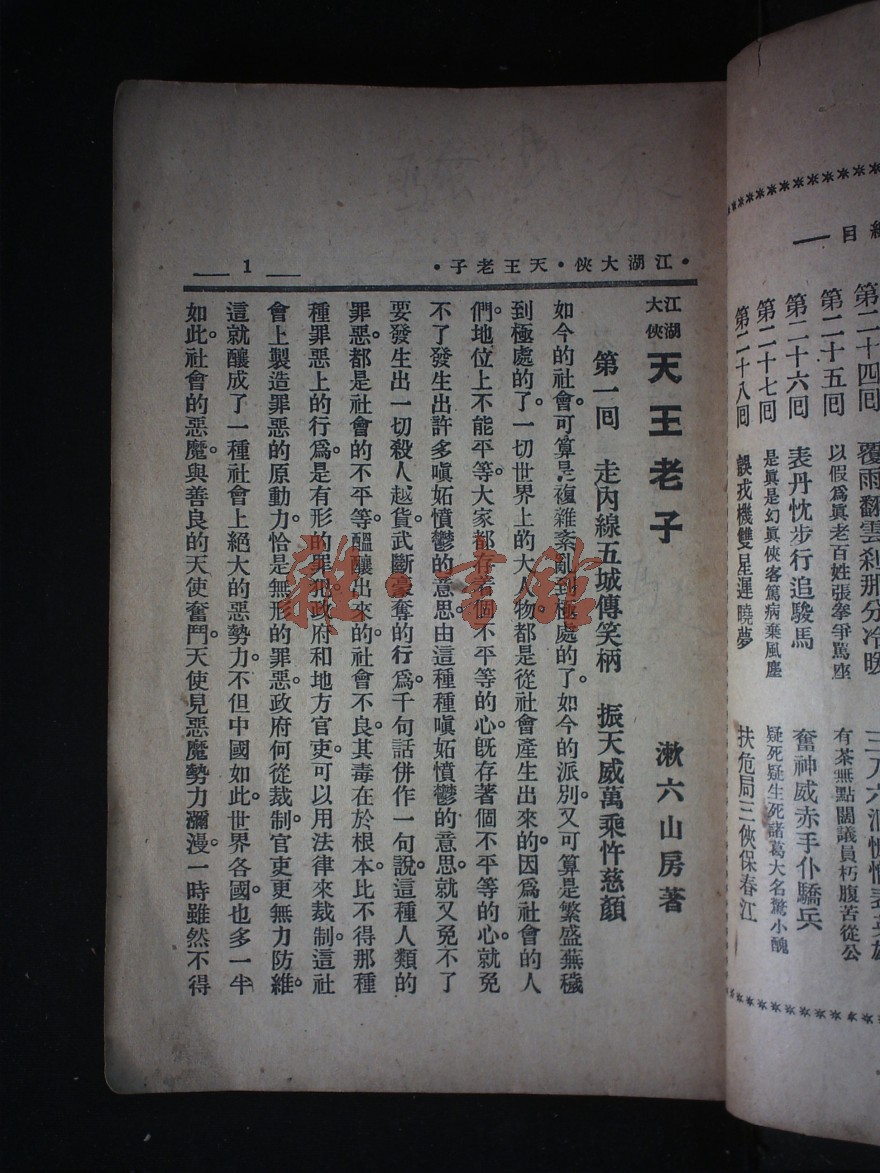 總目
第二十四囘 覆雨翻雲剎那分冷暖
第二十五囘 以假爲眞老百姓張拳爭罵座 有茶無點闊議員朽腹苦從公
第二十六囘 表丹忱步行追駿馬 奮神威赤手仆驕兵
第二十七囘 是眞是幻眞俠客篤病棄風塵 疑死疑生死諸葛大名驚小醜
第二十八囘 誤戎機雙星遲曉夢 扶危局三俠保春江
•江湖大俠•天王老子•
1
江湖大俠 天王老子 漱六山房著
第一囘 走內線五城傳笑柄 振天威萬乘忤慈顏
如今的社會。可算是複雜紊亂到極處的了。如今的派別。又可算是繁盛蕪穢
到極處的了。一切世界上的大人物。都是從社會產生出來的。因爲社會的人
們。地位上不能平等。大家都存着個不平等的心。旣存著個不平等的心。就免
不了發生出許多嗔妬憤鬱的意思。由這種種嗔妬憤鬱的意思。就又免不了
要發生出一切殺人越貨武斷豪奪的行爲。千句話併作一句說。這種人類的
罪惡。都是社會的不平等。醞釀出來的。社會不良。其毒在於根本。比不得那種
種罪惡上的行爲。是有形的罪犯。政府和地方官吏。可以用法律來裁制。這社
會上製造罪惡的原動力。恰是無形的罪惡。政府何從裁制。官吏更無力防維。
這就釀成了一種社會上絕大的惡勢力。不但中國如此。世界各國。也多一半
如此。社會的惡魔。與善良的天使奮鬥。天使見惡魔勢力瀰漫。一時雖然不得
雜·書館